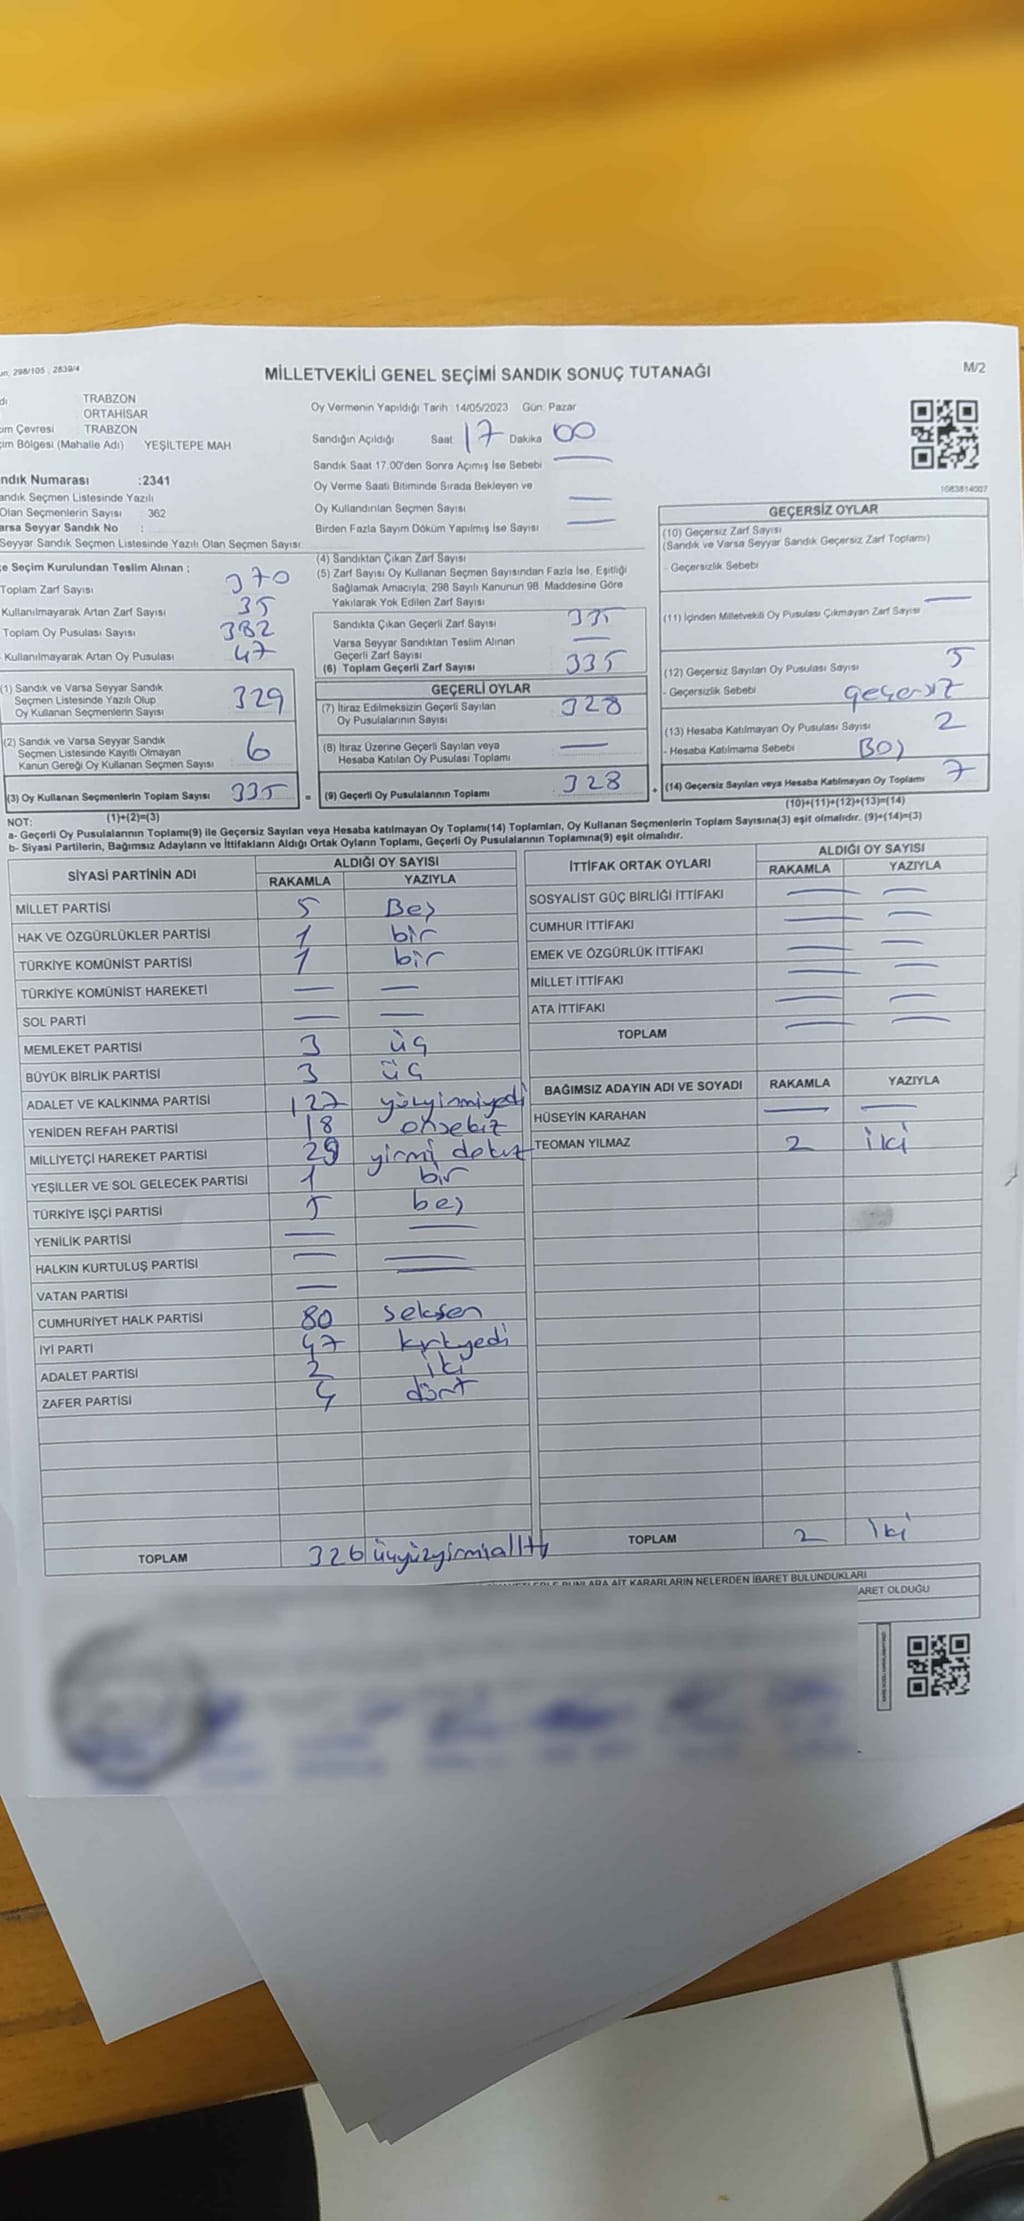 298/105 , 2839/4
MİLLETVEKİLİ GENEL SEÇİMİ SANDIK SONUÇ TUTANAĞI
M/2
TRABZON
ORTAHİSAR
im Çevresi TRABZON
im Bölgesi (Mahalle Adı) YEŞİLTEPE MAH
ndık Numarası :2341
andık Seçmen Listesinde Yazılı
Olan Seçmenlerin Sayısı 362
arsa Seyyar Sandık No :
Seyyar Sandık Seçmen Listesinde Yazılı Olan Seçmen Sayısı:
e Seçim Kurulundan Teslim Alınan ;
Toplam Zarf Sayısı 370
Kullanılmayarak Artan Zarf Sayısı 35
Toplam Oy Pusulası Sayısı 382
Kullanılmayarak Artan Oy Pusulası 47
(1) Sandık ve Varsa Seyyar Sandık
Seçmen Listesinde Yazılı Olup
Oy Kullanan Seçmenlerin Sayısı 329
(2) Sandık ve Varsa Seyyar Sandık
Seçmen Listesinde Kayıtlı Olmayan
Kanun Gereği Oy Kullanan Seçmen Sayısı 6
(3) Oy Kullanan Seçmenlerin Toplam Sayısı 335 =
(1)+(2)=(3)
Oy Vermenin Yapıldığı Tarih 14/05/2023 Gün: Pazar
Sandığın Açıldığı Saat 17 Dakika 00
Sandık Saat 17.00'den Sonra Açımış İse Sebebi —
Oy Verme Saati Bitiminde Sırada Bekleyen ve
Oy Kullandırılan Seçmen Sayısı —
Birden Fazla Sayım Döküm Yapılmış İse Sayısı —
(4) Sandıktan Çıkan Zarf Sayısı
(5) Zarf Sayısı Oy Kullanan Seçmen Sayısından Fazla İse, Eşitliği
Sağlamak Amacıyla, 298 Sayılı Kanunun 98. Maddesine Göre
Yakılarak Yok Edilen Zarf Sayısı
Sandıkta Çıkan Geçerli Zarf Sayısı 335
Varsa Seyyar Sandıktan Teslim Alınan
Geçerli Zarf Sayısı —
(6) Toplam Geçerli Zarf Sayısı 335
GEÇERLİ OYLAR
(7) İtiraz Edilmeksizin Geçerli Sayılan
Oy Pusulalarının Sayısı 328
(8) İtiraz Üzerine Geçerli Sayılan veya
Hesaba Katılan Oy Pusulası Toplamı —
(9) Geçerli Oy Pusulalarının Toplamı 328
1083814007
GEÇERSİZ OYLAR
(10) Geçersiz Zarf Sayısı
(Sandık ve Varsa Seyyar Sandık Geçersiz Zarf Toplamı)
- Geçersizlik Sebebi
(11) İçinden Milletvekili Oy Pusulası Çıkmayan Zarf Sayısı —
(12) Geçersiz Sayılan Oy Pusulası Sayısı 5
- Geçersizlik Sebebi geçersiz
(13) Hesaba Katılmayan Oy Pusulası Sayısı 2
- Hesaba Katılmama Sebebi Boş
+ (14) Geçersiz Sayılan veya Hesaba Katılmayan Oy Toplamı 7
(10)+(11)+(12)+(13)=(14)
NOT:
a- Geçerli Oy Pusulalarının Toplamı(9) ile Geçersiz Sayılan veya Hesaba katılmayan Oy Toplamı(14) Toplamları, Oy Kullanan Seçmenlerin Toplam Sayısına(3) eşit olmalıdır. (9)+(14)=(3)
b- Siyasi Partilerin, Bağımsız Adayların ve İttifakların Aldığı Ortak Oyların Toplamı, Geçerli Oy Pusulalarının Toplamına(9) eşit olmalıdır.
SİYASİ PARTİNİN ADI ALDIĞI OY SAYISI
RAKAMLA YAZIYLA
MİLLET PARTİSİ 5 Beş
HAK VE ÖZGÜRLÜKLER PARTİSİ 1 bir
TÜRKİYE KOMÜNİST PARTİSİ 1 bir
TÜRKİYE KOMÜNİST HAREKETİ — —
SOL PARTİ — —
MEMLEKET PARTİSİ 3 üç
BÜYÜK BİRLİK PARTİSİ 3 üç
ADALET VE KALKINMA PARTİSİ 127 yüzyirmiyedi
YENİDEN REFAH PARTİSİ 18 onsekiz
MİLLİYETÇİ HAREKET PARTİSİ 29 yirmi dokuz
YEŞİLLER VE SOL GELECEK PARTİSİ 1 bir
TÜRKİYE İŞÇİ PARTİSİ 5 beş
YENİLİK PARTİSİ — —
HALKIN KURTULUŞ PARTİSİ — —
VATAN PARTİSİ — —
CUMHURİYET HALK PARTİSİ 80 seksen
İYİ PARTİ 47 kırkyedi
ADALET PARTİSİ 2 iki
ZAFER PARTİSİ 4 dört
TOPLAM 326 üçyüzyirmialtı
İTTİFAK ORTAK OYLARI ALDIĞI OY SAYISI
RAKAMLA YAZIYLA
SOSYALİST GÜÇ BİRLİĞİ İTTİFAKI — —
CUMHUR İTTİFAKI — —
EMEK VE ÖZGÜRLÜK İTTİFAKI — —
MİLLET İTTİFAKI — —
ATA İTTİFAKI — —
TOPLAM — —
BAĞIMSIZ ADAYIN ADI VE SOYADI RAKAMLA YAZIYLA
HÜSEYİN KARAHAN — —
TEOMAN YILMAZ 2 iki
TOPLAM 2 iki
BUNLARA AİT KARARLARIN NELERDEN İBARET BULUNDUKLARI
ARET OLDUĞU